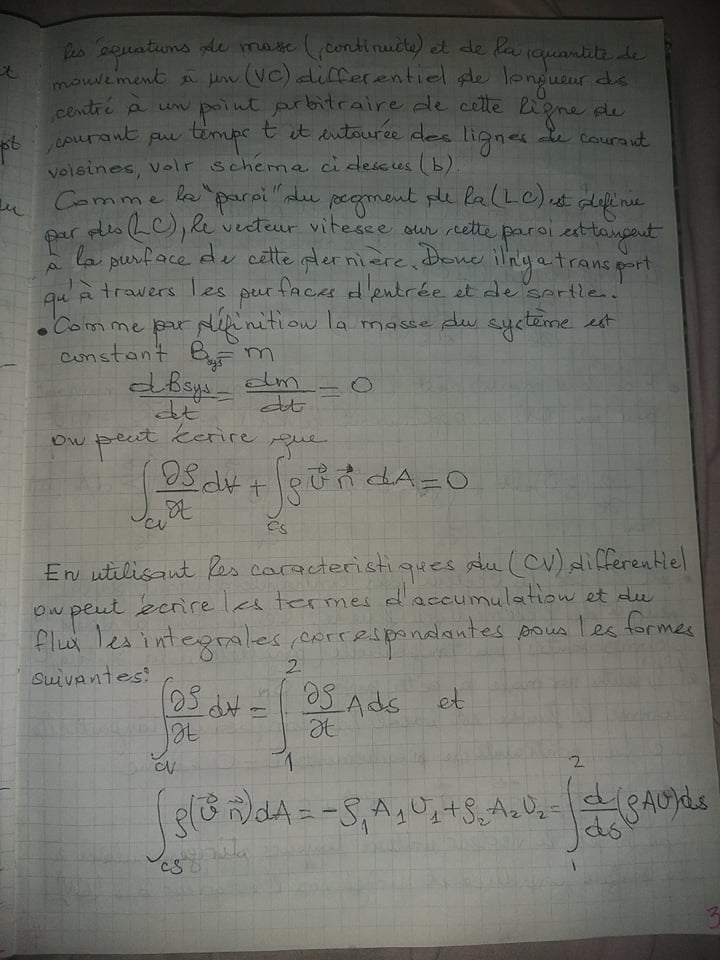 les équations de masse (continuité) et de la quantité de
mouvement à un (VC) differentiel de longueur ds
centré à un point arbitraire de cette ligne de
courant au temps t et entourée des lignes de courant
voisines, voir schéma ci dessus (b).
Comme la "paroi" du segment de la (LC) est définie
par des (LC), le vecteur vitesse sur cette paroi est tangent
à la surface de cette dernière. Donc il n'y a transport
qu'à travers les surfaces d'entrée et de sortie.
• Comme par définition la masse du système est
constant Bsys = m
dBsys/dt = dm/dt = 0
on peut écrire que
∫cv ∂ρ/∂t dV + ∫cs ρ v⃗ n⃗ dA = 0
En utilisant les caracteristiques du (CV) differentiel
on peut écrire les termes d'accumulation et du
flux les integrales correspondantes sous les formes
suivantes:
∫cv ∂ρ/∂t dV = ∫₁² ∂ρ/∂t A ds et
∫cs ρ(v⃗ n⃗)dA = -ρ₁A₁v₁ + ρ₂A₂v₂ = ∫₁² d/ds (ρAv)ds
3